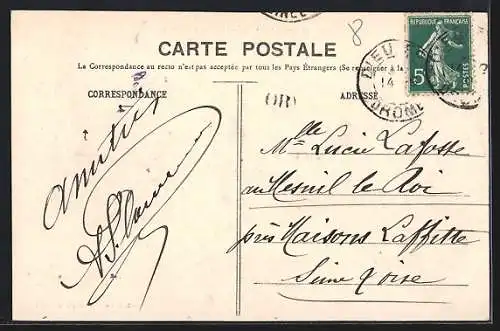 8
CARTE POSTALE
La Correspondance au recto n'est pas acceptée par tous les Pays Étrangers (Se renseigner à la
CORRESPONDANCE
ADRESSE
OR
REPUBLIQUE FRANÇAISE
5
DIEU
14
DROME
Amitiés
Mlle Lucie Lafosse
au Mesnil le Roi
près Maisons Laffitte
Seine & Oise